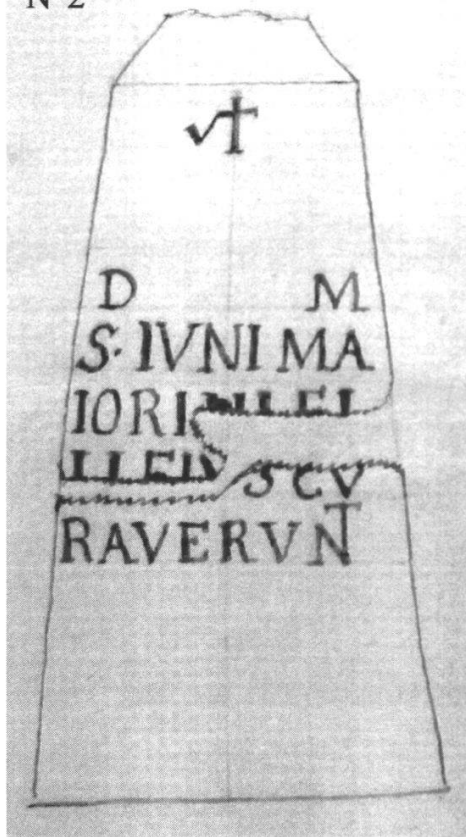 N 2
D M
S· IVNI MA
IORI
S CV
RAVERVNT